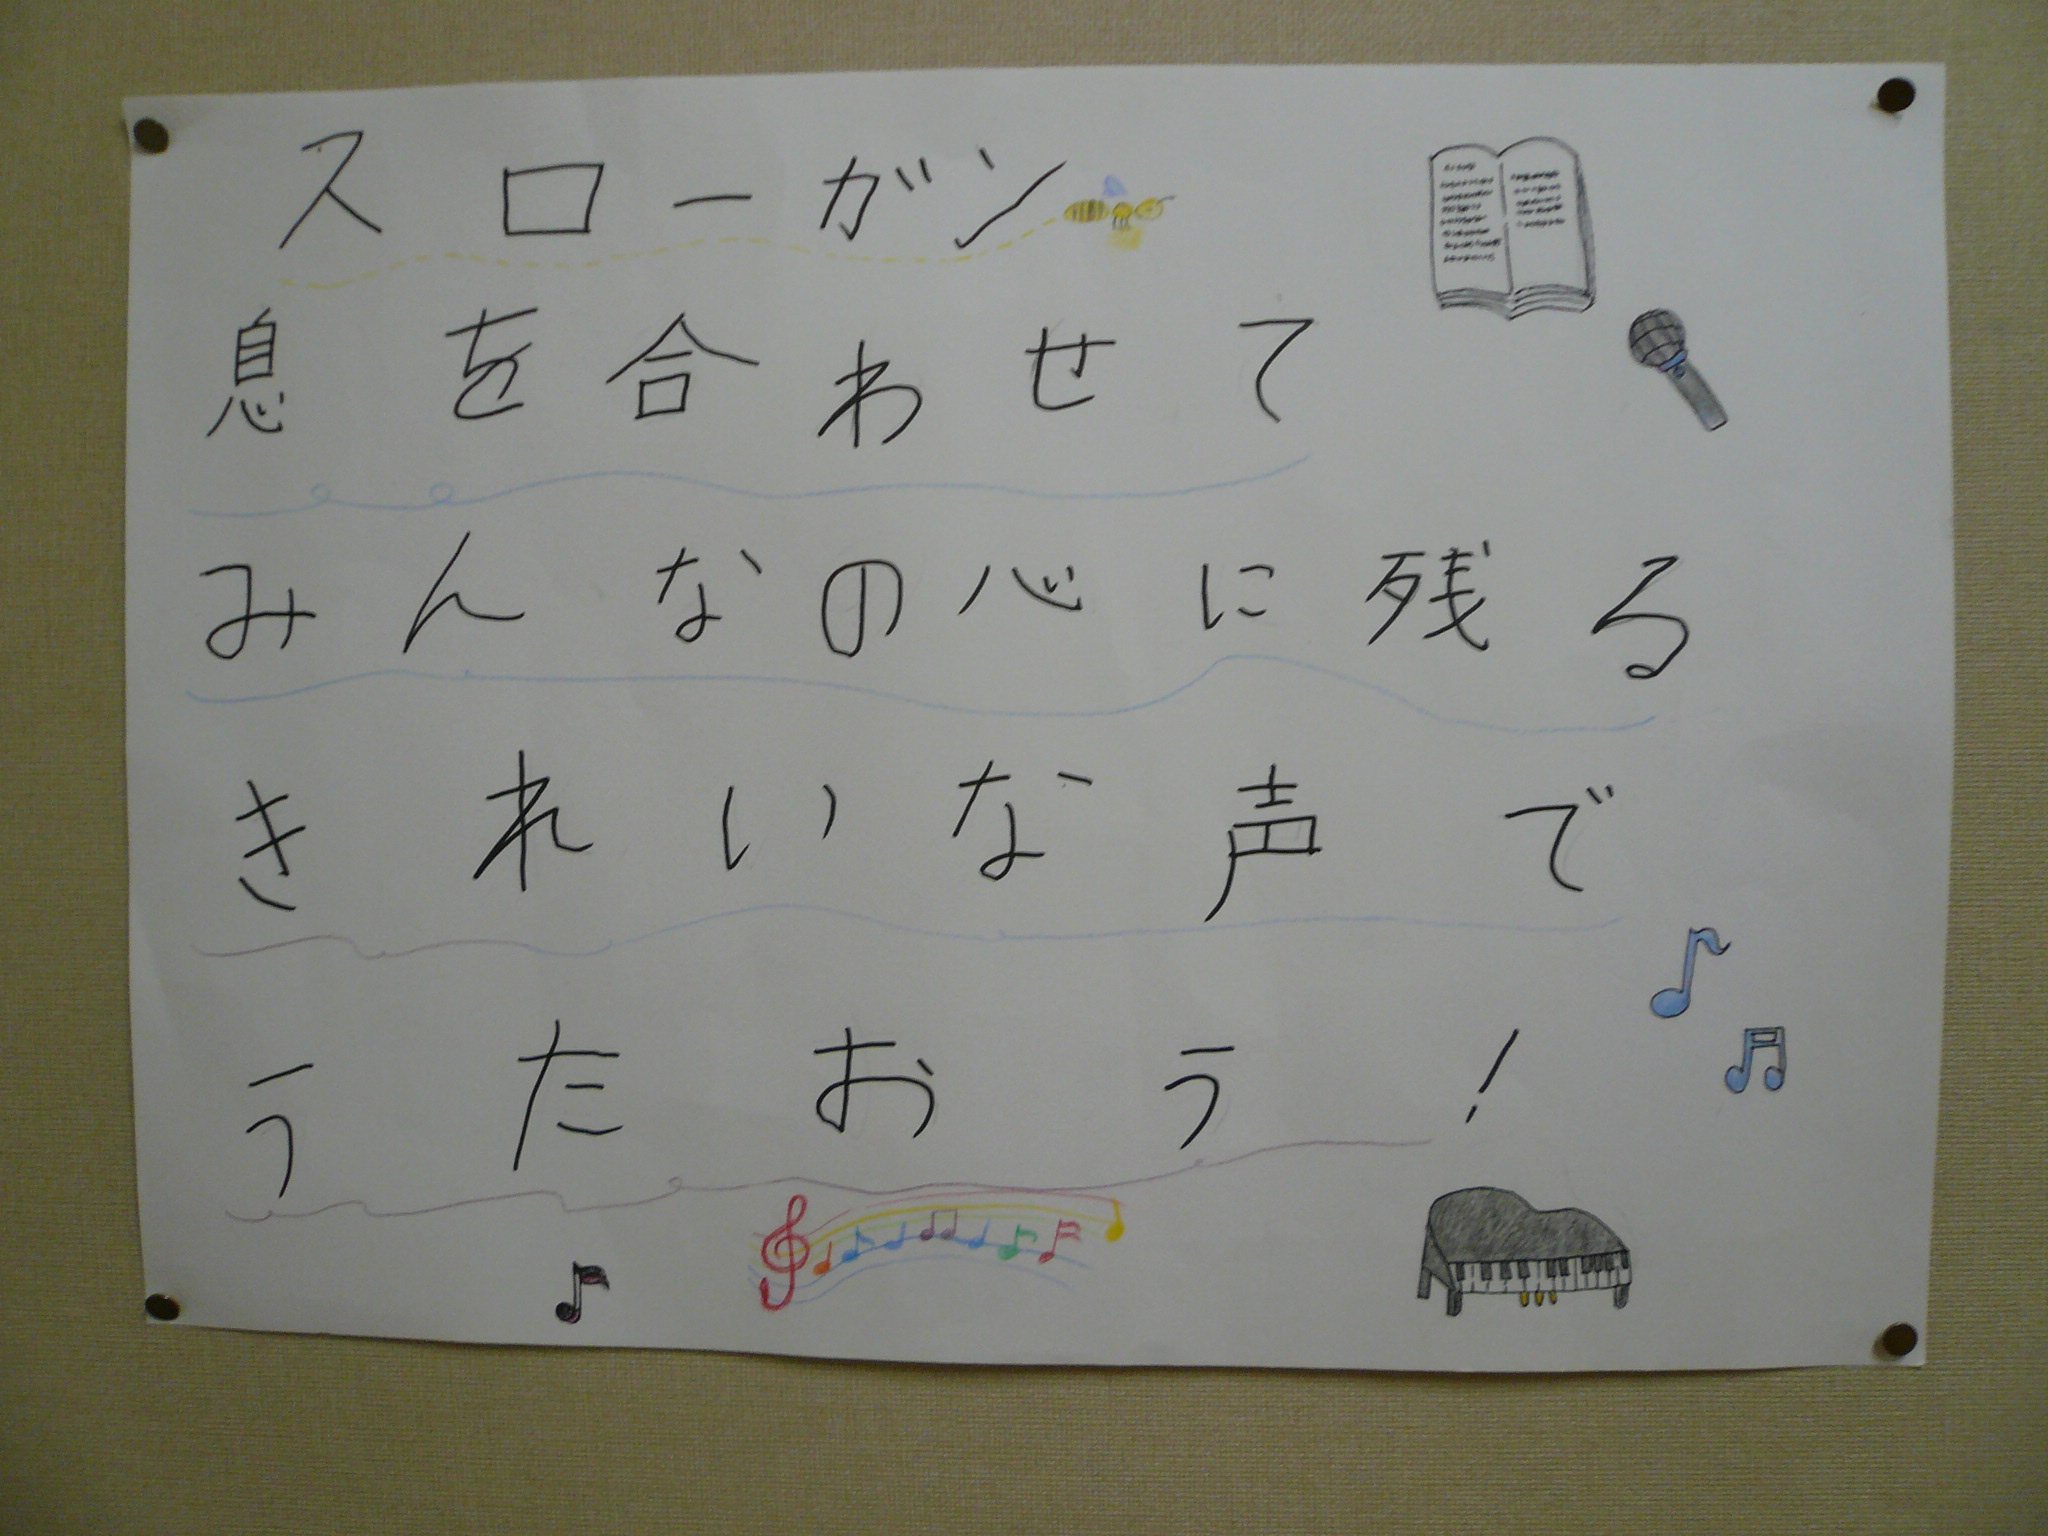 スローガン
息を合わせて
みんなの心に残る
きれいな声で
うたおう!